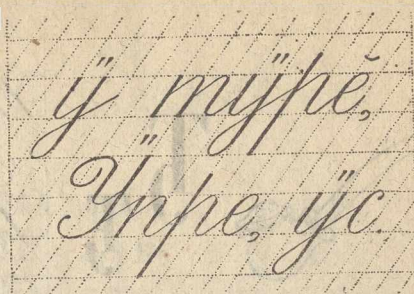 ӳ тӳрӗ,
Ӳпре, ӳс.